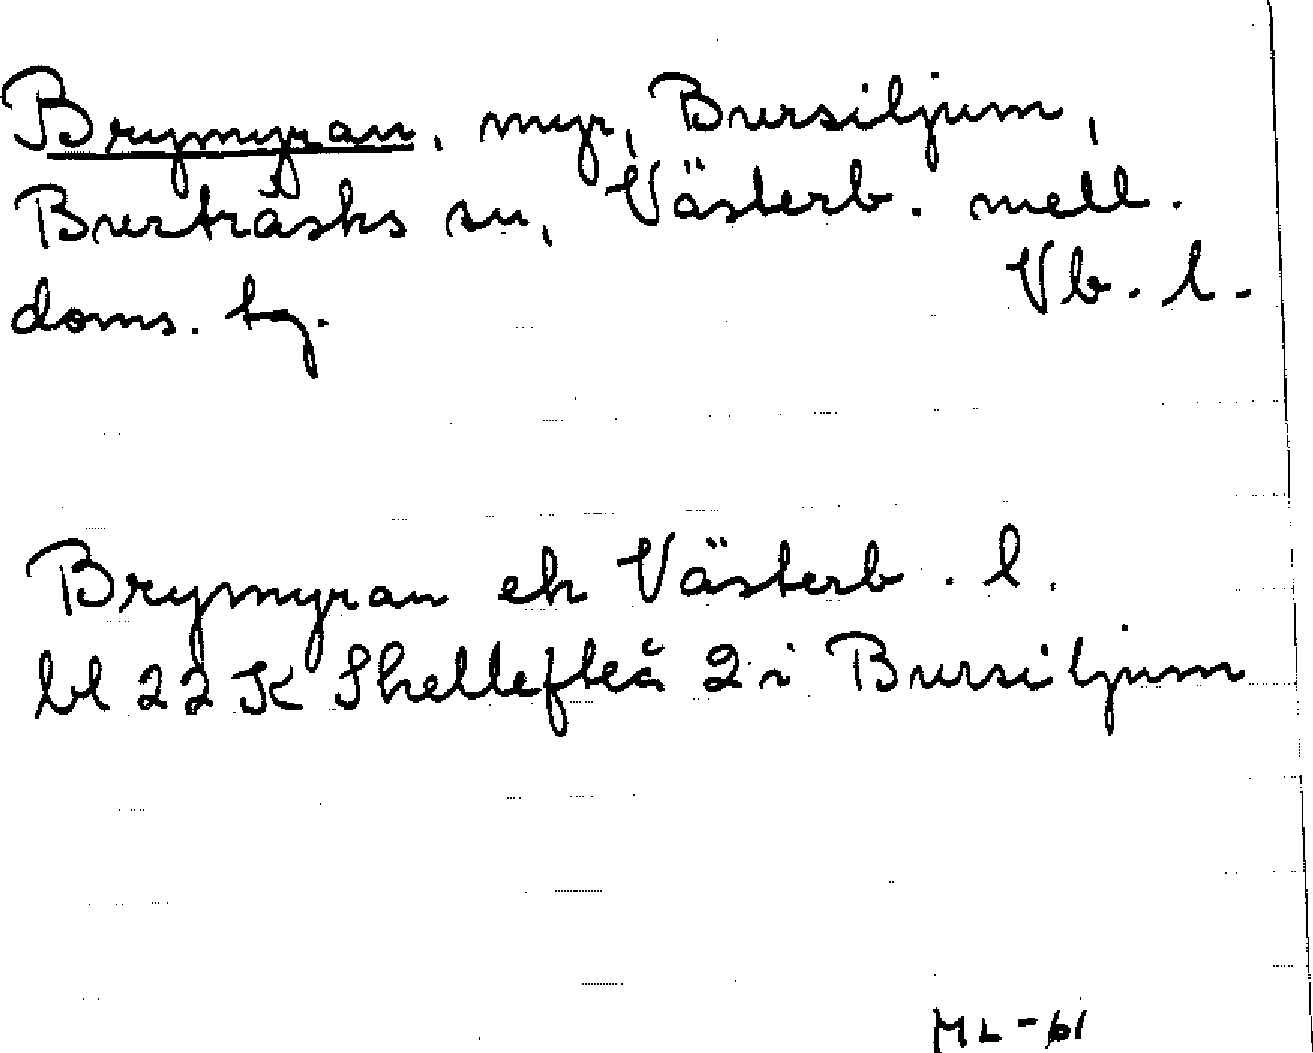 Brymyran, myr, Bursiljum,
Burträsks sn, Västerb. mell.
doms. tg. Vb. l.
Brymyran ek Västerb. l.
bl 22 K Skellefteå 2 i Bursiljum
ML -61